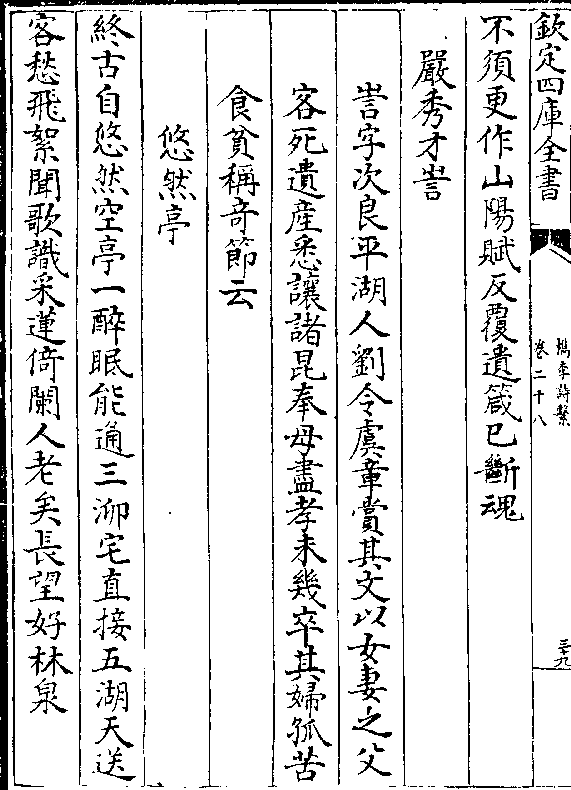 欽定四庫全書
檇李詩繫
卷二十八
三十九
不須更作山陽賦反覆遺箴已斷魂
嚴秀才訔
訔字次良平湖人劉令虞夔賞其文以女妻之父
客死遺産悉讓諸昆奉母盡孝未幾卒其婦孤苦
食貧稱竒節云
悠然亭
終古自悠然空亭一醉眠能通三泖宅直接五湖天送
客愁飛絮聞歌識采蓮倚闌人老矣長望好林泉